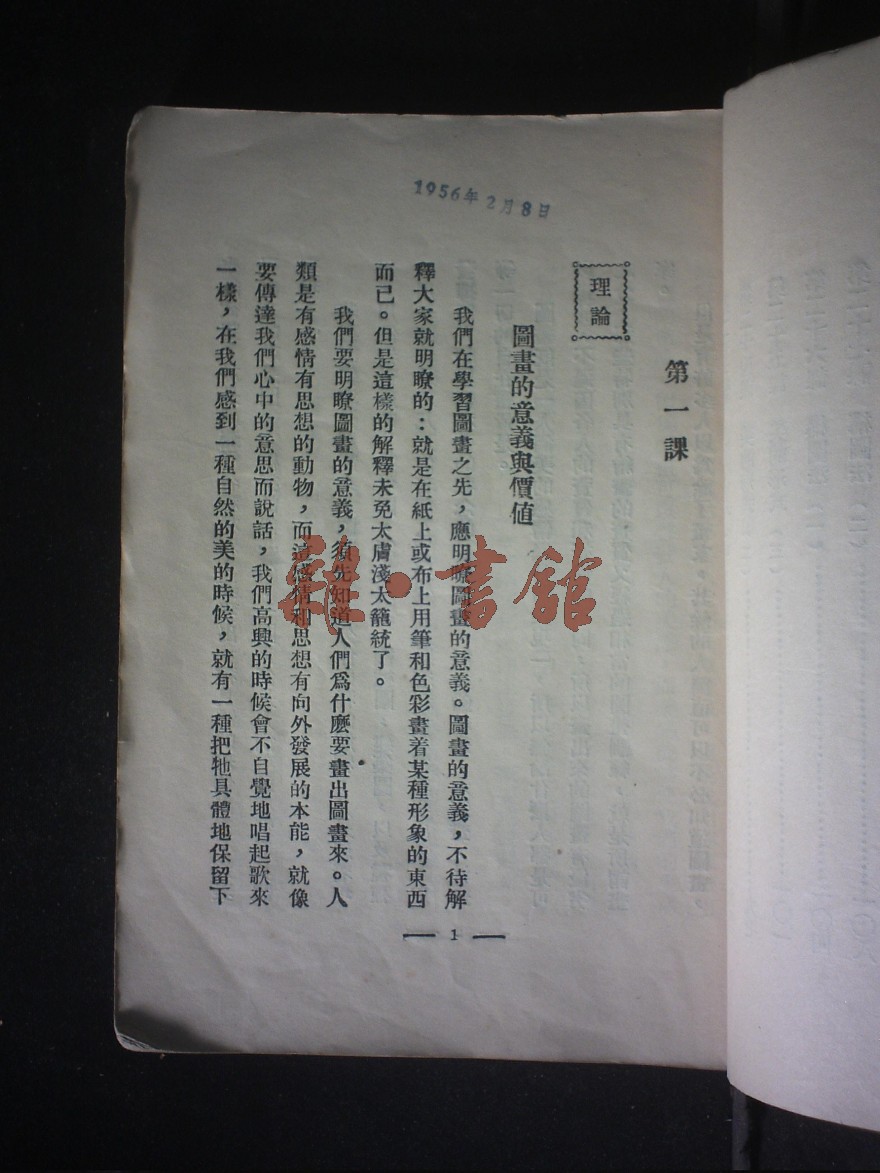 1956年2月8日
第一課
理論
圖畫的意義與價値
我們在學習圖畫之先，應明瞭圖畫的意義。圖畫的意義，不待解
釋大家就明瞭的：就是在紙上或布上用筆和色彩畫着某種形象的東西
而已。但是這樣的解釋未免太膚淺太籠統了。
我們要明瞭圖畫的意義，須先知道人們爲什麽要畫出圖畫來。人
類是有感情有思想的動物，而這感情和思想有向外發展的本能，就像
要傳達我們心中的意思而說話，我們高興的時候會不自覺地唱起歌來
一樣，在我們感到一種自然的美的時候，就有一種把牠具體地保留下
1
雜·書館